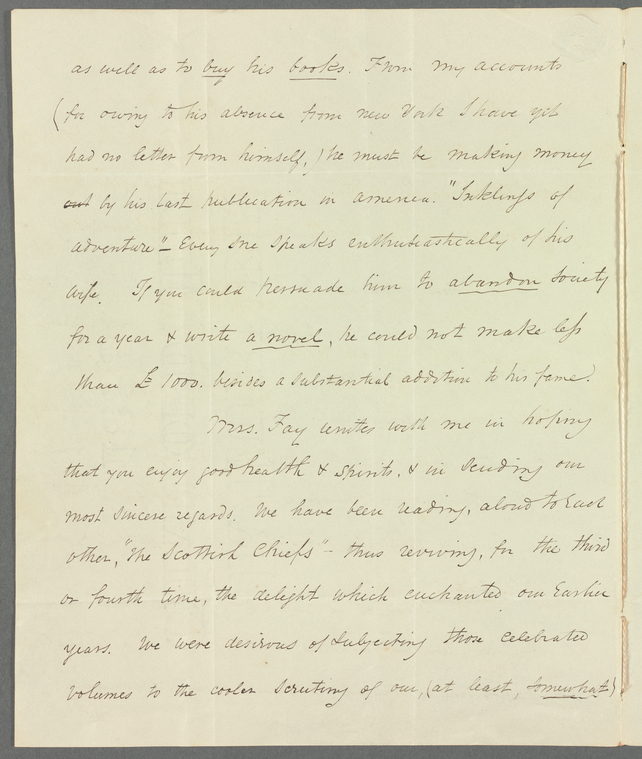 as well as to buy his books. From my accounts
(for owing to his absence from New York I have yet
had no letter from himself,) he must be making money
out by his last publication in America. "Inklings of
adventure" – Every one speaks enthusiastically of his
wife. If you could persuade him to abandon society
for a year & write a novel, he could not make less
than £1000. besides a substantial addition to his fame.
Mrs. Fay unites with me in hoping
that you enjoy good health & spirits, & in sending our
most sincere regards. We have been reading, aloud to each
other, "The Scottish Chiefs" – thus reviving, for the third
or fourth time, the delight which enchanted our Earlier
years. We were desirous of subjecting those celebrated
volumes to the cooler scrutiny of our, (at least, somewhat)